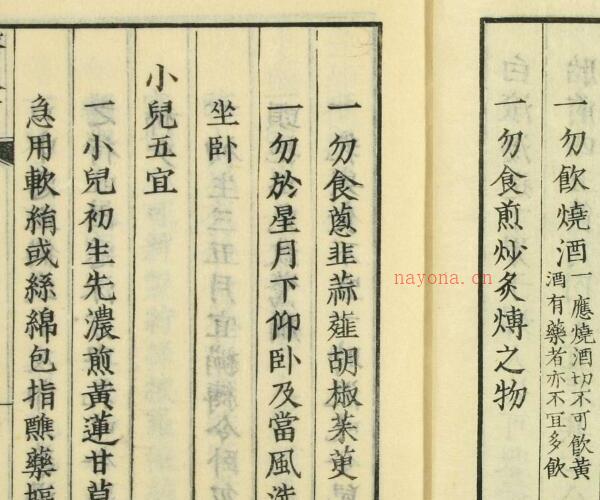 一勿飲燒酒一應燒酒切不可飲黃
酒有藥者亦不宜多飲
一勿食煎炒炙煿之物
一勿食蔥韭蒜薤胡椒茱萸
一勿於星月下仰卧及當風洗
坐卧
小兒五宜
一小兒初生先濃煎黃蓮甘草
急用軟絹或絲綿包指蘸藥摳
nayona.cn